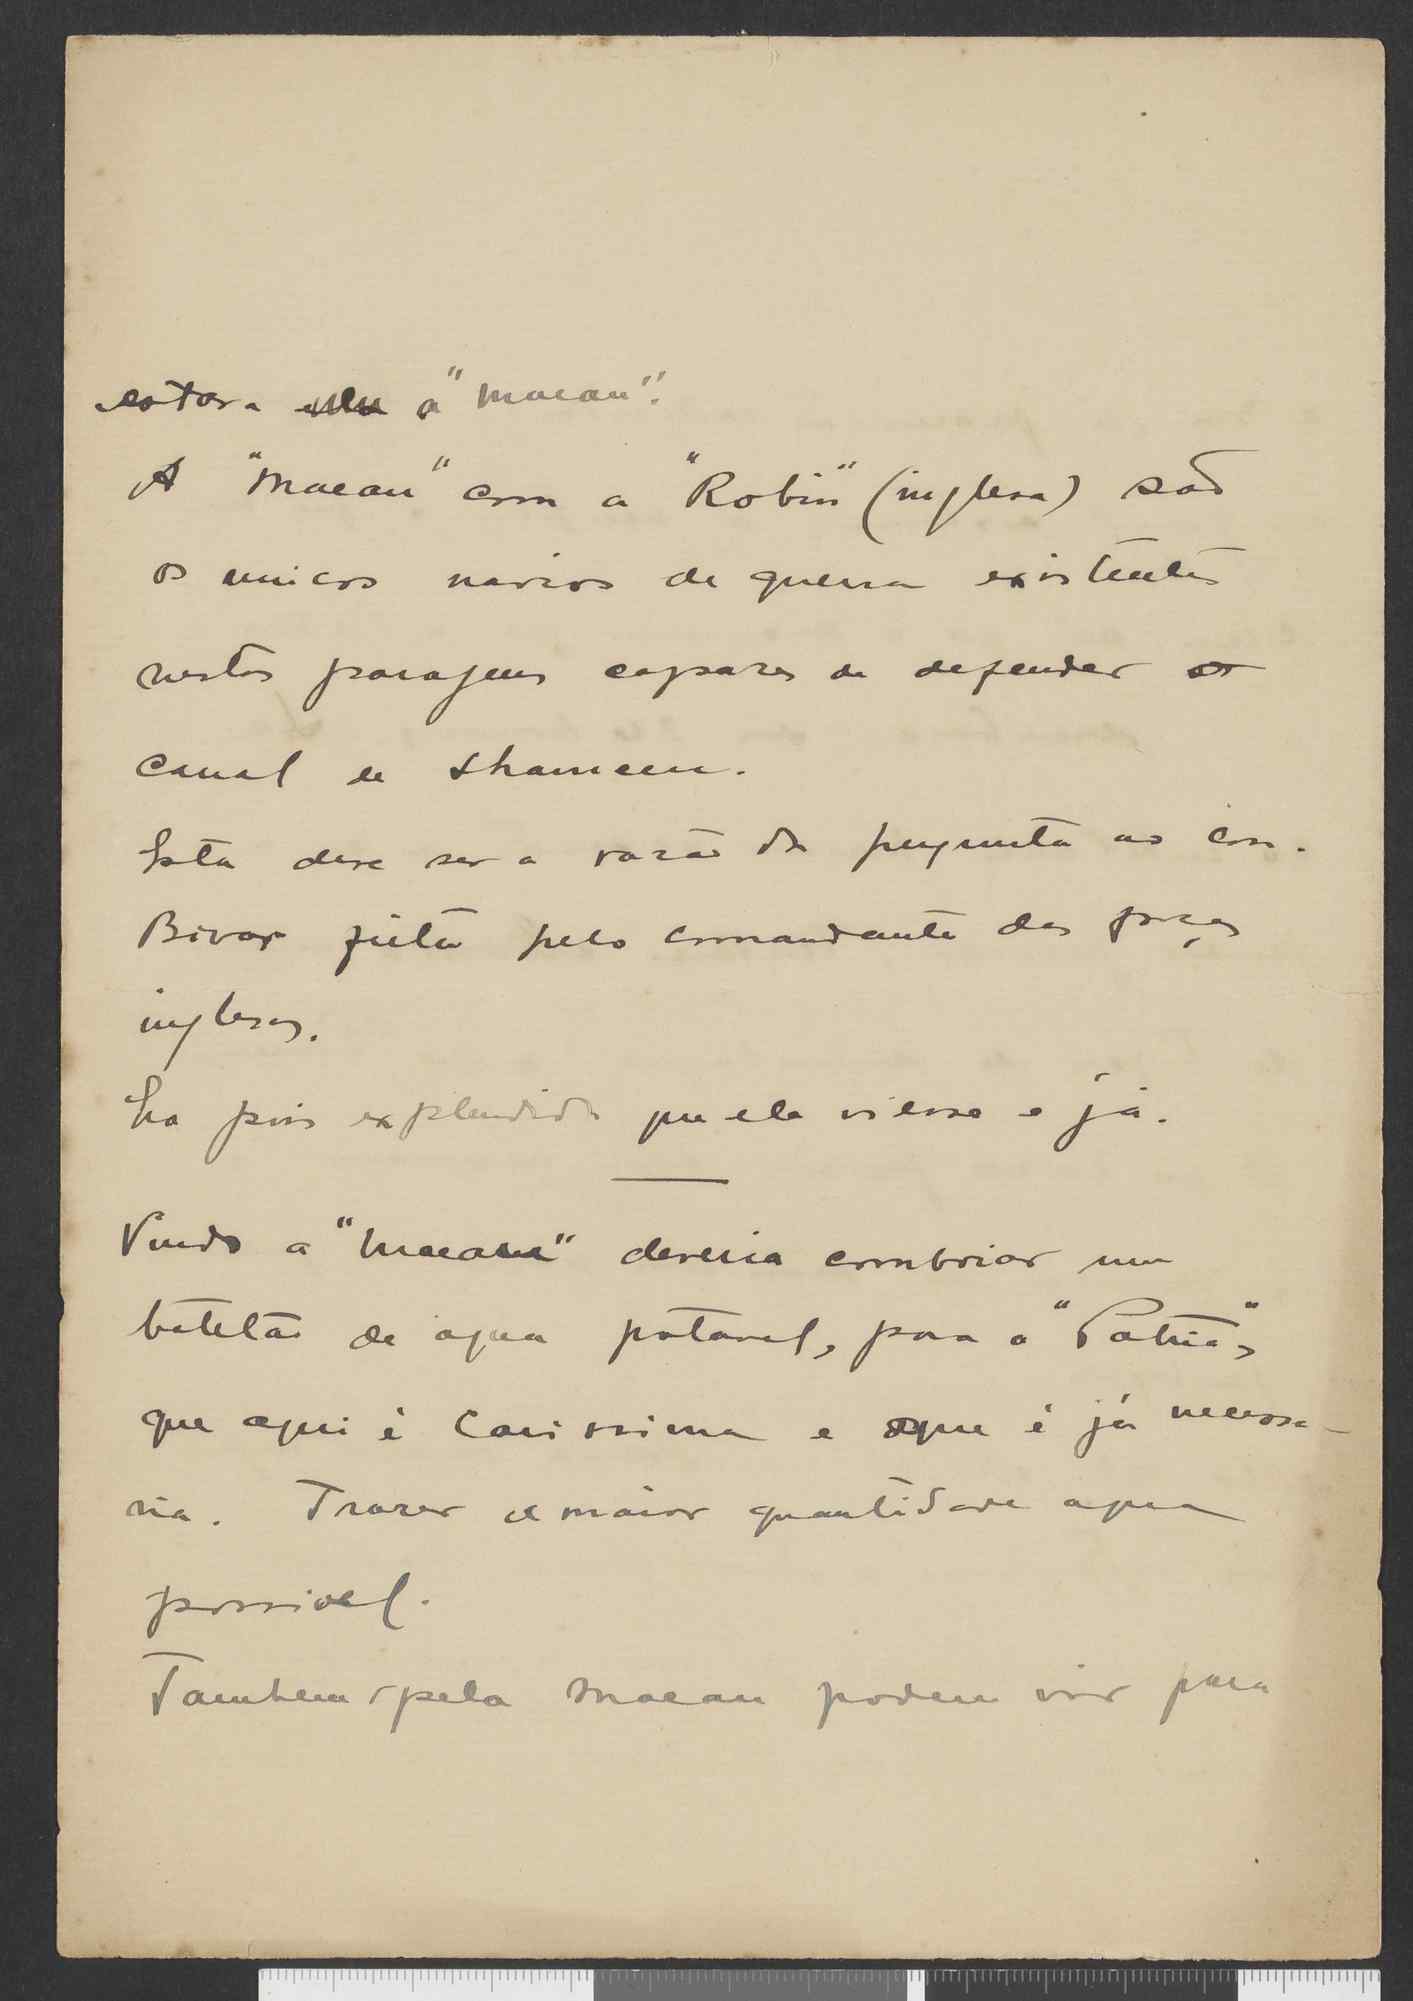 estava a "Macau".
A "Macau" com a "Robin" (inglesa) são
os unicos navios de guerra existentes
nestas paragens capazes de defender o
canal de Shameen.
Esta deve ser a razão da pergunta ao con.
Bivar feita pelo comandante das forças
inglesas.
Era pois explendido que ela viesse e já.
Vindo a "Macau" deveria comboiar um
batelão de agua potavel, para a "Patria",
que aqui é carissima e que é já necessa-
ria. Trazer a maior quantidade agua
possivel.
Tambem pela Macau podem vir para